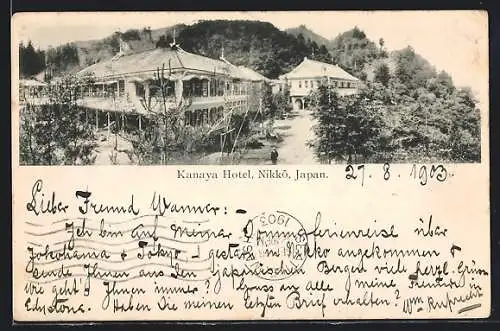 Kanaya Hotel, Nikkō, Japan.
27. 8. 1903
Lieber Freund Wanner:
Ich bin auf meiner Sommerferienreise über
Yokohama & Tokyo gestern in Nikko angekommen &
sende Ihnen aus den japanischen Bergen viele herzl. Grüße
Wie geht's Ihnen immer? Gruss an alle meine Freunde in
Edystone. Haben Sie meinen letzten Brief erhalten? Wm Ruprecht
1903